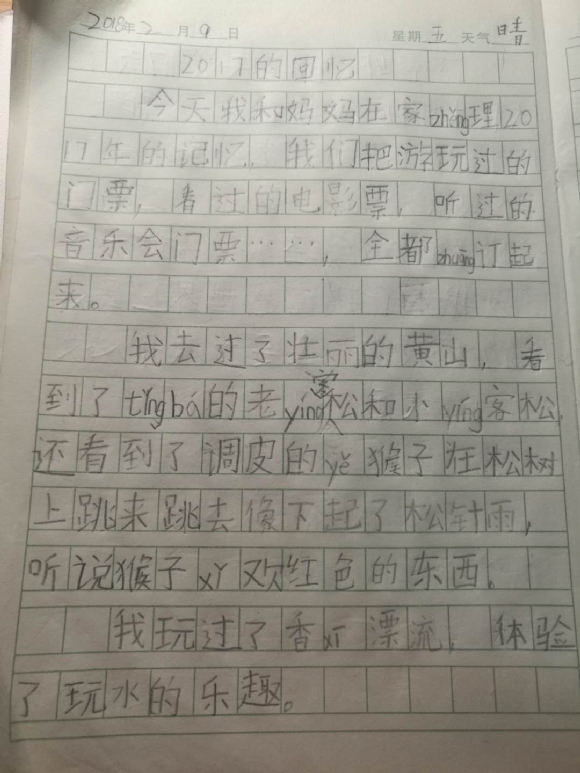 2018年2月9日 星期五 天气晴
2017的回忆
今天我和妈妈在家zhěng理20
17年的记忆，我们把游玩过的
门票，看过的电影票，听过的
音乐会门票……，全都zhuāng订起
来。
我去过了壮丽的黄山，看
到了tǐngbá的老yíng客松和小yíng客松，
还看到了调皮的yě猴子在松树
上跳来跳去像下起了松针雨，
听说猴子xǐ欢红色的东西。
我玩过了香xī漂流，体验
了玩水的乐趣。